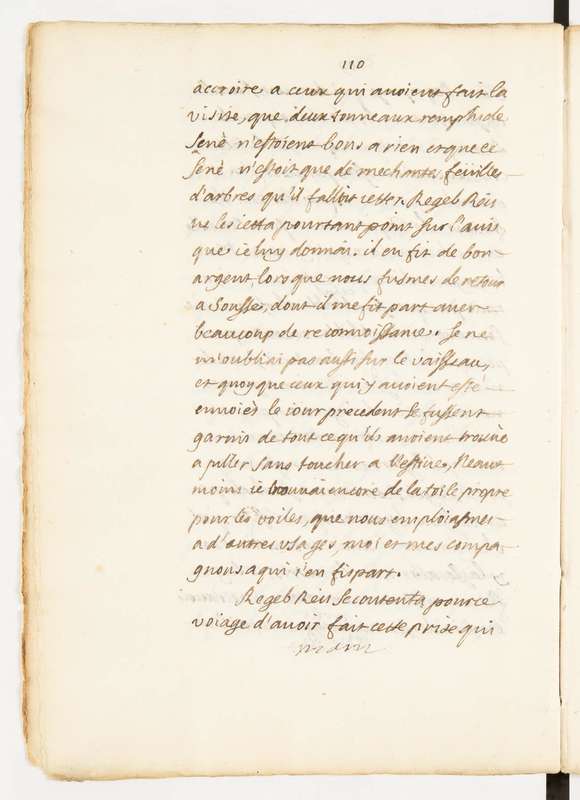 110
accroire a ceux qui avoient fait la
visite, que deux tonneaux remplis de
sené n'estoient bons a rien et que ce
sené n'estoit que de mechantes feüilles
d'arbres qu'il falloit ietter. Regeb Reis
ne les ietta pourtant point sur l'avis
que ie luy donnai. il en fit de bon
argent, lorsque nous fusmes de retour
a Sousse, dont il me fit part avec
beaucoup de reconnoissance. Je ne
m'oubliai pas aussi sur le vaisseau,
et quoy que ceux qui y avoient esté
envoiés le iour precedent se fussent
garnis de tout ce qu'ils avoient trouvé
a piller sans toucher a l'estive, Neant
moins ie trouvai encore de la toile propre
pour les voiles, que nous emploiasmes
a d'autres usages, moi et mes compa
gnons a qui i'en fis part.
Regeb Reis se contenta pour ce
voiage d'avoir fait cette prise qui